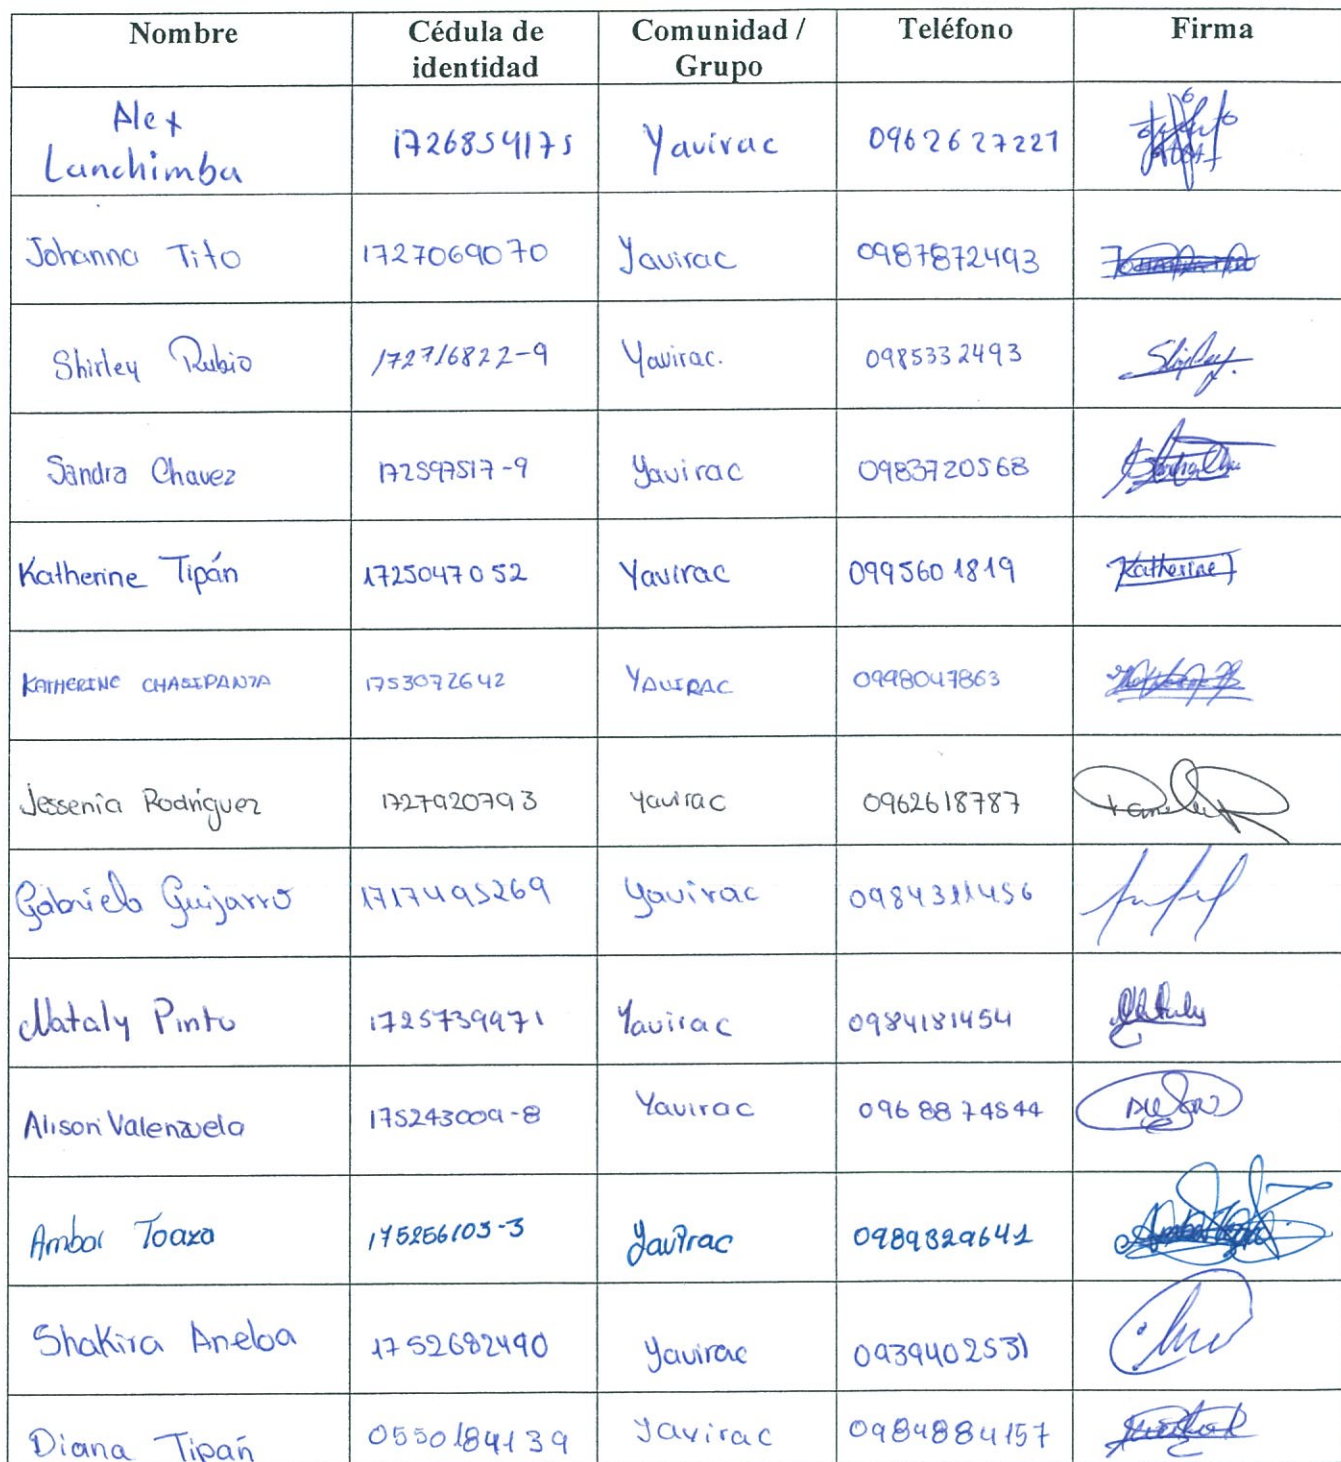 Nombre Cédula de identidad Comunidad / Grupo Teléfono Firma
Alex Lanchimba 1726854175 Yavirac 0962627221
Johanna Tito 1727069070 Yavirac 0987872493
Shirley Rubio 172716822-9 Yavirac. 0985332493 Shirley
Sandra Chavez 172597517-9 Yavirac 0983720568
Katherine Tipán 1725047052 Yavirac 0995601819 Katherine
KATHERINE CHASIPANTA 1753072642 YAVIRAC 0998047863
Jessenia Rodríguez 1727920793 Yavirac 0962618787
Gabriela Guijarro 1717495269 Yavirac 0984311456
Nataly Pinto 1725739971 Yavirac 0984181454 Nataly
Alison Valenzuela 175243009-8 Yavirac 0968874544
Ambar Toaza 175256103-3 Yavirac 0989329641
Shakira Aneloa 1752682490 Yavirac 0939402531
Diana Tipán 0550184139 Yavirac 0984884157